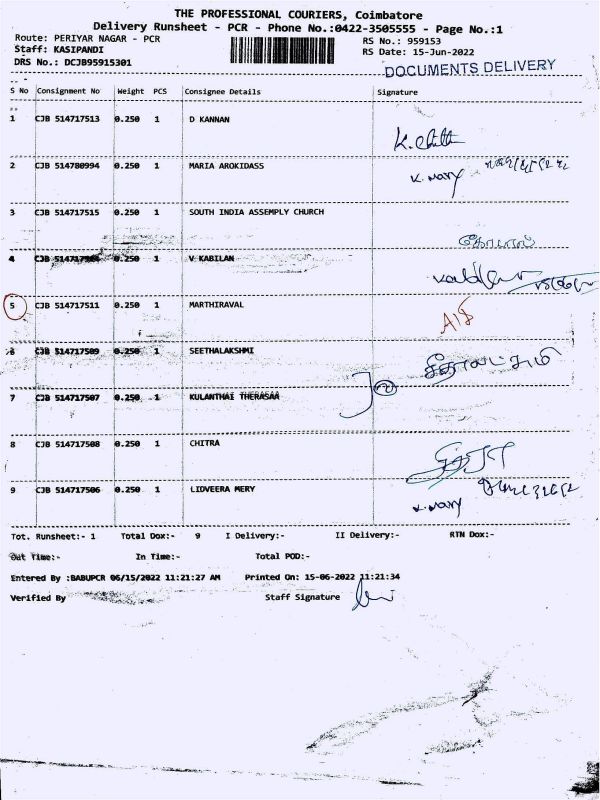 THE PROFESSIONAL COURIERS, Coimbatore
Delivery Runsheet - PCR - Phone No.:0422-3505555 - Page No.:1
Route: PERIYAR NAGAR - PCR
RS No.: 959153
Staff: KASIPANDI
RS Date: 15-Jun-2022
DRS No.: DCJB95915301
DOCUMENTS DELIVERY
S No Consignment No Weight PCS Consignee Details Signature
1 CJB 514717513 0.250 1 D KANNAN
2 CJB 514780994 0.250 1 MARIA AROKIDASS
K. Mary
3 CJB 514717515 0.250 1 SOUTH INDIA ASSEMPLY CHURCH
4 CJB 0.250 1 V KABILAN
5 CJB 514717511 0.250 1 MARTHIRAVAL
6 CJB 514717509 0.250 1 SEETHALAKSHMI
7 CJB 514717507 0.250 1 KULANTHAI THERASAA
8 CJB 514717508 0.250 1 CHITRA
9 CJB 514717506 0.250 1 LIDVEERA MERY
K. Mary
Tot. Runsheet:- 1 Total Dox:- 9 I Delivery:- II Delivery:- RTN Dox:-
Out Time:- In Time:- Total POD:-
Entered By :BABUPCR 06/15/2022 11:21:27 AM Printed On: 15-06-2022 11:21:34
Verified By Staff Signature